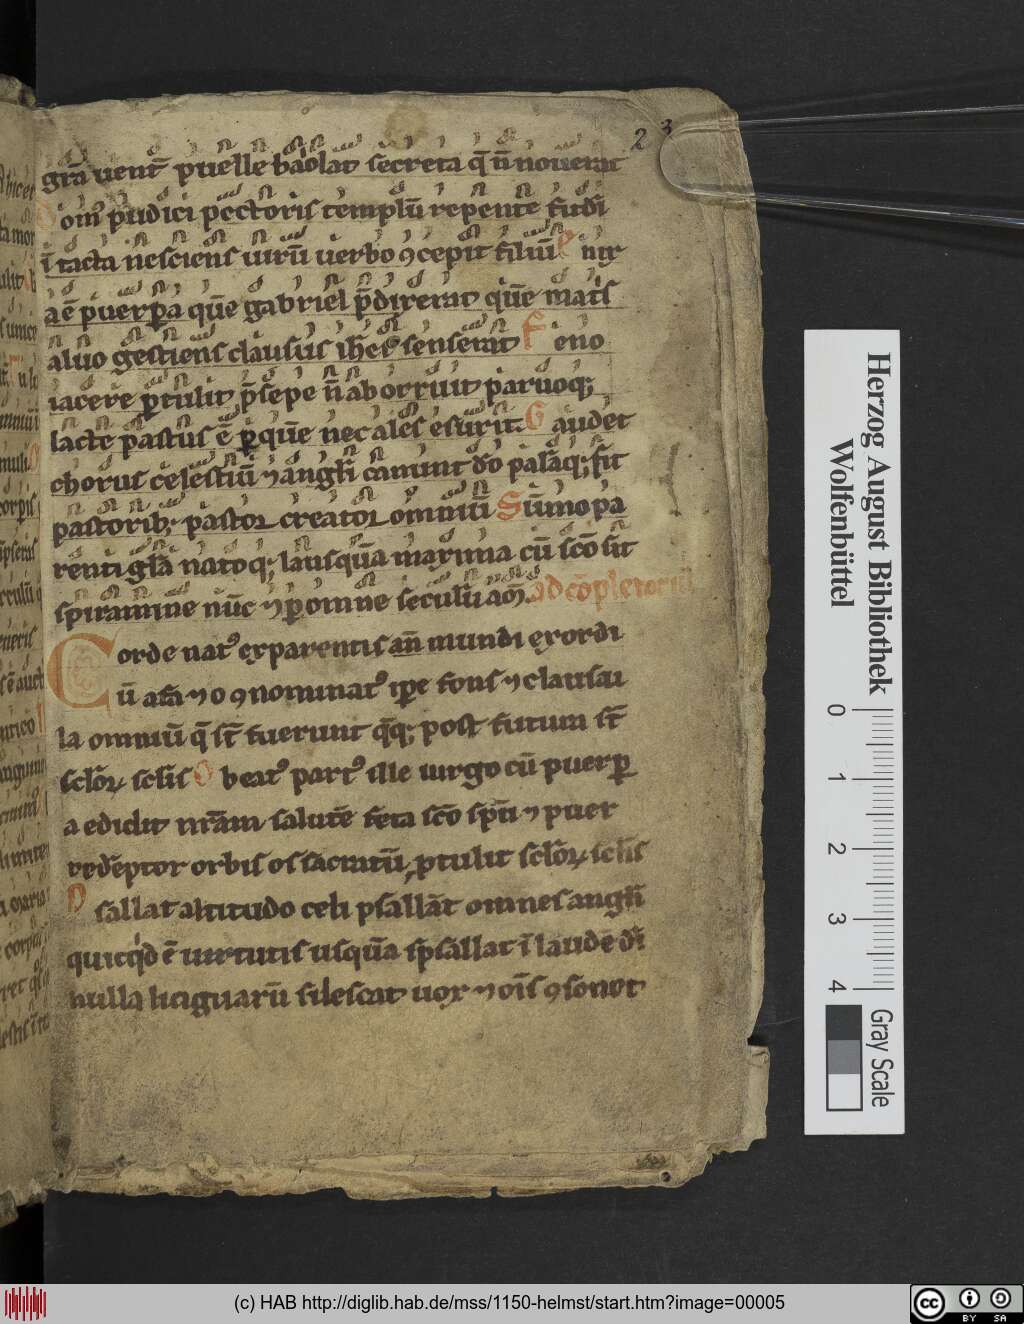 2 3
grā̄ uent᷑ puelle baiolat secreta q̄ n̄ nouerat
Dom᷒ pudici pectoris templū repente fit di
ītacta nesciens uirū uerbo ꝯcepit filiū Enix
a ē puerpᷓa quē gabriel p̄dixerat quē mat͛s
aluo gestiens clausus ih̄es senserat Feno
iacere ꝑtulit p̄sepe n̄ aborruit paruoq;
lacte pastus ē ꝑ quē nec ales esurit. Gaudet
chorus celestiū ⁊ angl̄i canunt dō palāq; fit
pastorib; pastor creator omniū Sūmo pa
renti gl̄a natoq; laus quā maxima cū sc̄o sit
spiramine nūc ⁊ ꝑ omne seculū am̄. ad cōpletoriū
Corde nat᷒ ex parentis an̄ mundi exordi
ū alfa ⁊ o ꝯnominat᷒ ip̄e fons ⁊ clausu
la omniū q̄ st̄ fuerunt q̄q; post futura st̄
sclōꝝ sclīs O beat᷒ part᷒ ille uirgo cū puerꝑ
a edidit nr̄am salutē feta sc̄o spū ⁊ puer
redēptor orbis os sacratū ꝓtulit sclōꝝ sclīs
Psallat altitudo celi psallāt omnes angl̄i
quicq'd ē uirtutis usquā psallat ī laudē dī
nulla linguarū silescat uox ⁊ oīs ꝯsonet
Herzog August Bibliothek
Wolfenbüttel
0 1 2 3 4
Gray Scale
(c) HAB http://diglib.hab.de/mss/1150-helmst/start.htm?image=00005
cc BY SA